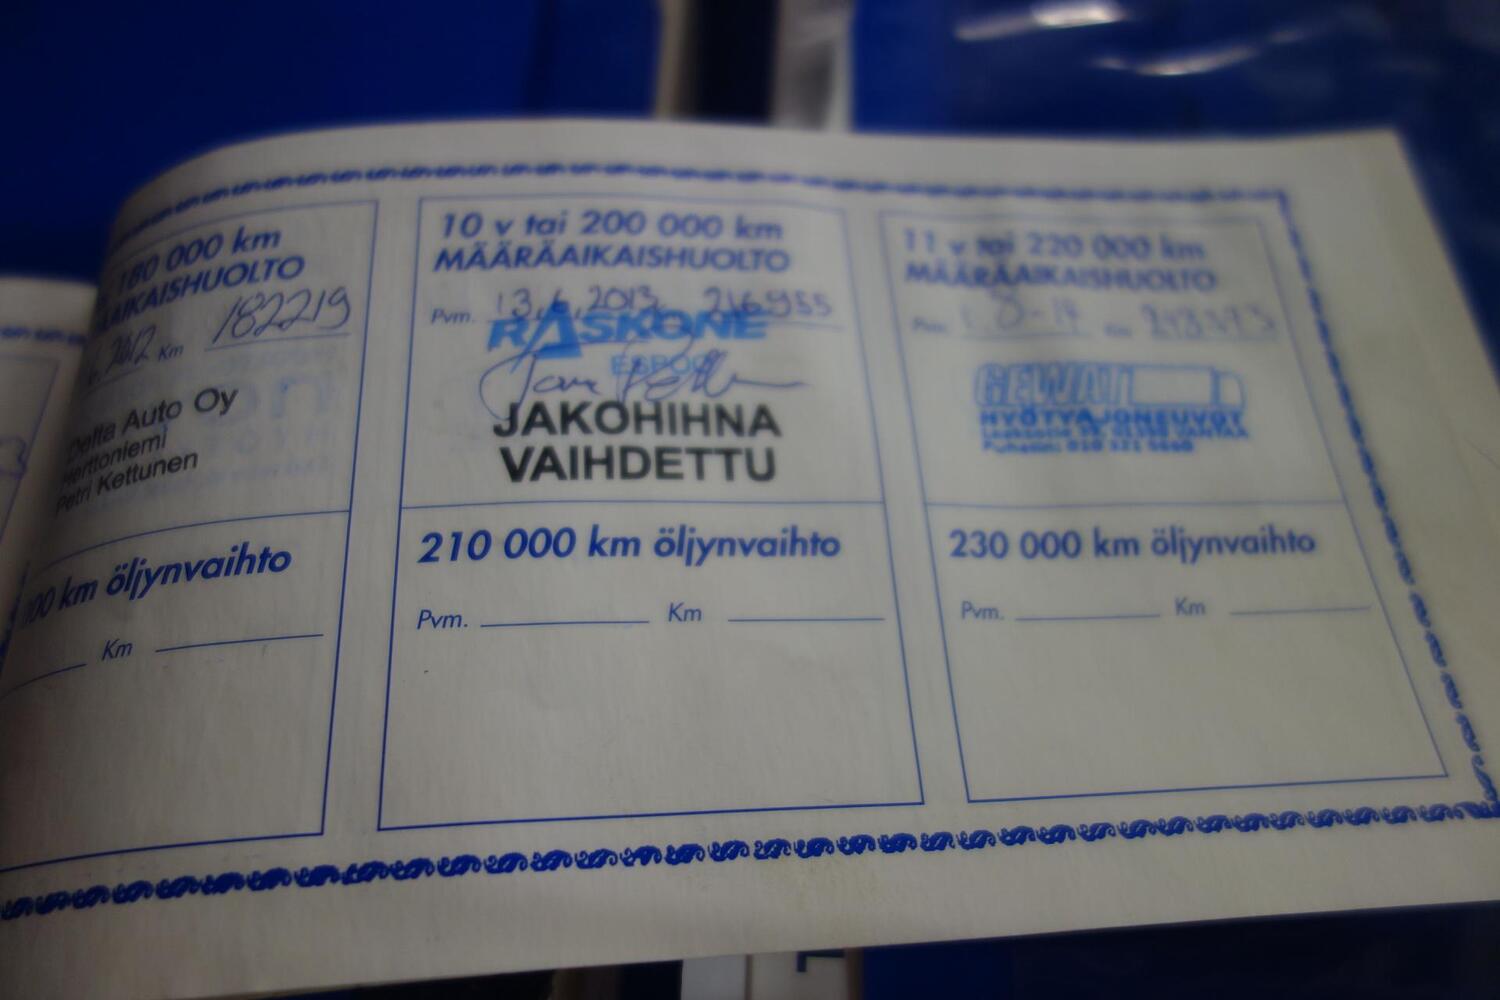 180 000 km
AIKAISHUOLTO
2012 Km 182219
Delta Auto Oy
Herttoniemi
Petri Kettunen
km öljynvaihto
Km
10 v tai 200 000 km
MÄÄRÄAIKAISHUOLTO
Pvm. 13.6.2013 216955
RASKONE
ESPOO
JAKOHIHNA
VAIHDETTU
210 000 km öljynvaihto
Pvm. Km
11 v tai 220 000 km
MÄÄRÄAIKAISHUOLTO
Pvm. Km
GEWAT
HYÖTYAJONEUVOT
230 000 km öljynvaihto
Pvm. Km